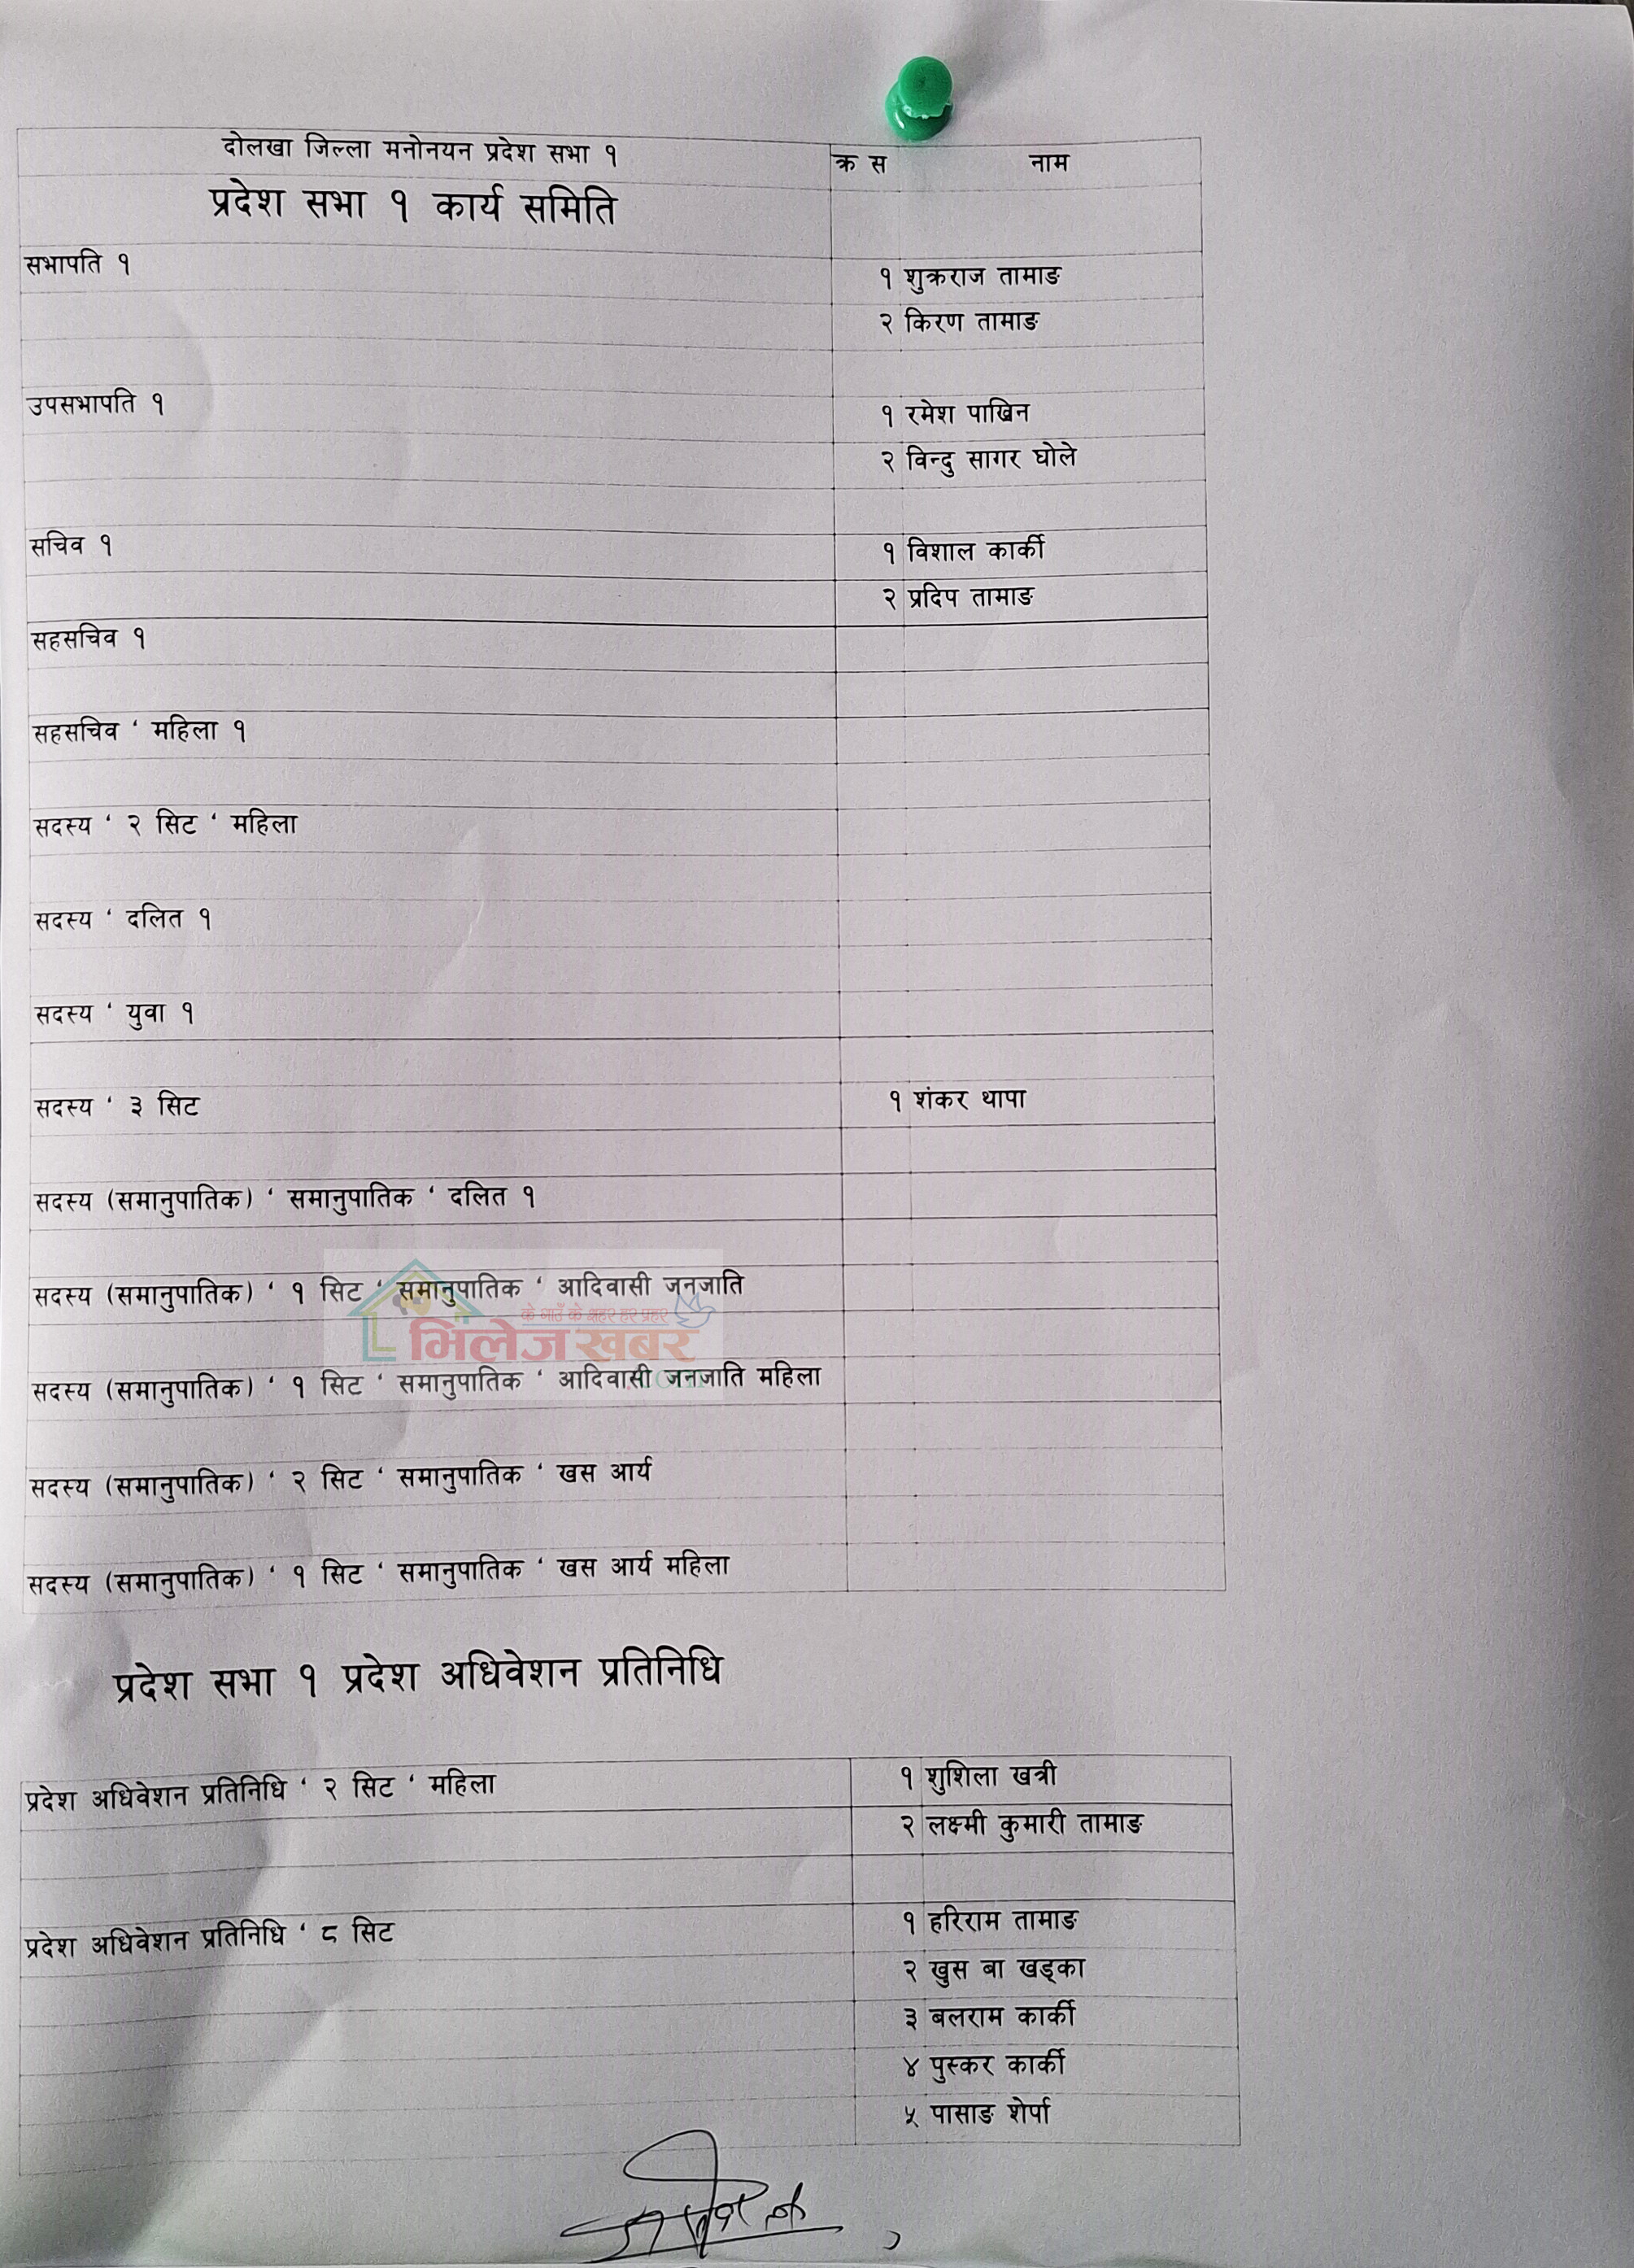 दोलखा जिल्ला मनोनयन प्रदेश सभा १ क्र स नाम
प्रदेश सभा १ कार्य समिति
सभापति १ १ शुक्रराज तामाङ
२ किरण तामाङ
उपसभापति १ १ रमेश पाखिन
२ विन्दु सागर घोले
सचिव १ १ विशाल कार्की
२ प्रदिप तामाङ
सहसचिव १
सहसचिव ‘ महिला १
सदस्य ‘ २ सिट ‘ महिला
सदस्य ‘ दलित १
सदस्य ‘ युवा १
सदस्य ‘ ३ सिट १ शंकर थापा
सदस्य (समानुपातिक) ‘ समानुपातिक ‘ दलित १
सदस्य (समानुपातिक) ‘ १ सिट ‘ समानुपातिक ‘ आदिवासी जनजाति
के गाउँ के शहर हर प्रहर
भिलेज खबर
सदस्य (समानुपातिक) ‘ १ सिट ‘ समानुपातिक ‘ आदिवासी जनजाति महिला
सदस्य (समानुपातिक) ‘ २ सिट ‘ समानुपातिक ‘ खस आर्य
सदस्य (समानुपातिक) ‘ १ सिट ‘ समानुपातिक ‘ खस आर्य महिला
प्रदेश सभा १ प्रदेश अधिवेशन प्रतिनिधि
प्रदेश अधिवेशन प्रतिनिधि ‘ २ सिट ‘ महिला १ शुशिला खत्री
२ लक्ष्मी कुमारी तामाङ
प्रदेश अधिवेशन प्रतिनिधि ‘ ८ सिट १ हरिराम तामाङ
२ खुस बा खड्का
३ बलराम कार्की
४ पुस्कर कार्की
५ पासाङ शेर्पा